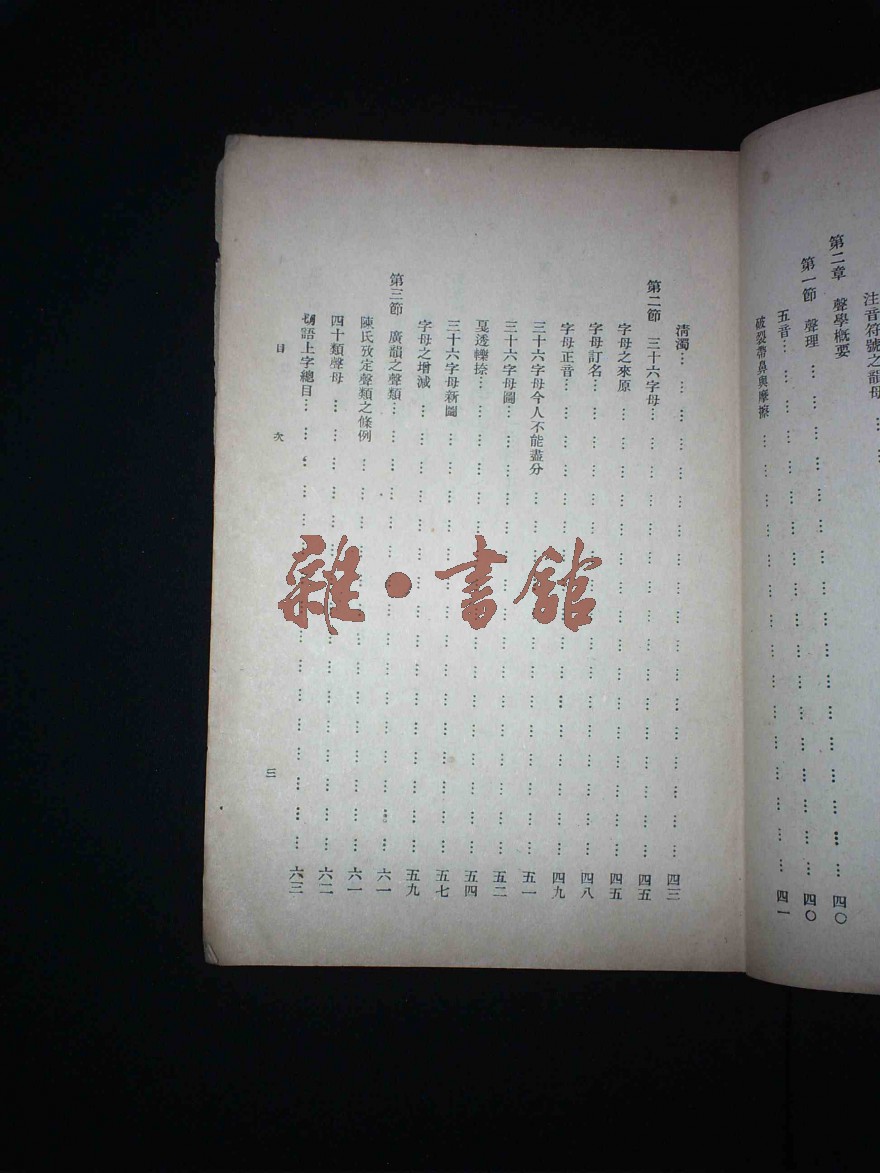 注音符號之韻母……
第二章　聲學概要……四〇
第一節　聲理……四〇
五音……四一
破裂帶鼻與摩擦……
淸濁……四三
第二節　三十六字母……四五
字母之來原……四五
字母訂名……四八
字母正音……四九
三十六字母今人不能盡分……五一
三十六字母圖……五二
戛透轢捺……五四
三十六字母新圖……五七
字母之增減……五九
第三節　廣韻之聲類……六一
陳氏攷定聲類之條例……六一
四十類聲母……六二
切語上字總目……六三
目　次　三
雜·書館